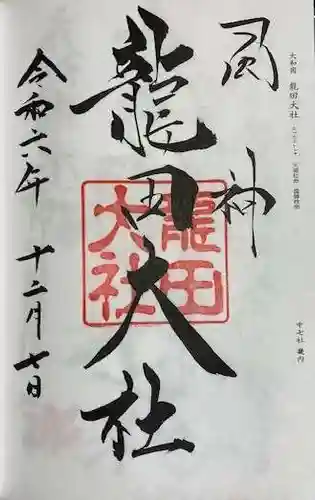 大和国 龍田大社
二十二社 畿内
風神
龍田大社
龍田
大社
令和六年 十二月七日